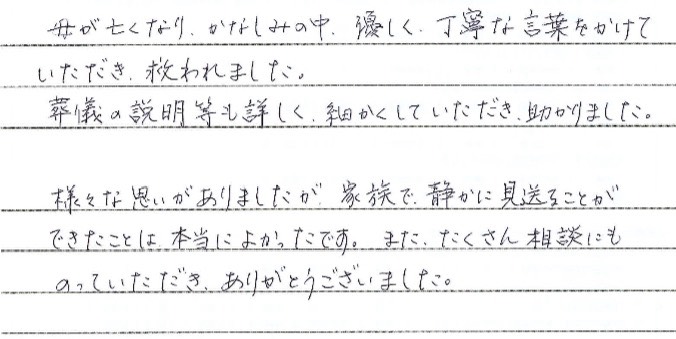 母が亡くなり、かなしみの中、優しく、丁寧な言葉をかけて
いただき、救われました。
葬儀の説明等も詳しく、細かくしていただき、助かりました。
様々な思いがありましたが、家族で、静かに見送ることが
できたことは、本当によかったです。また、たくさん相談にも
のっていただき、ありがとうございました。